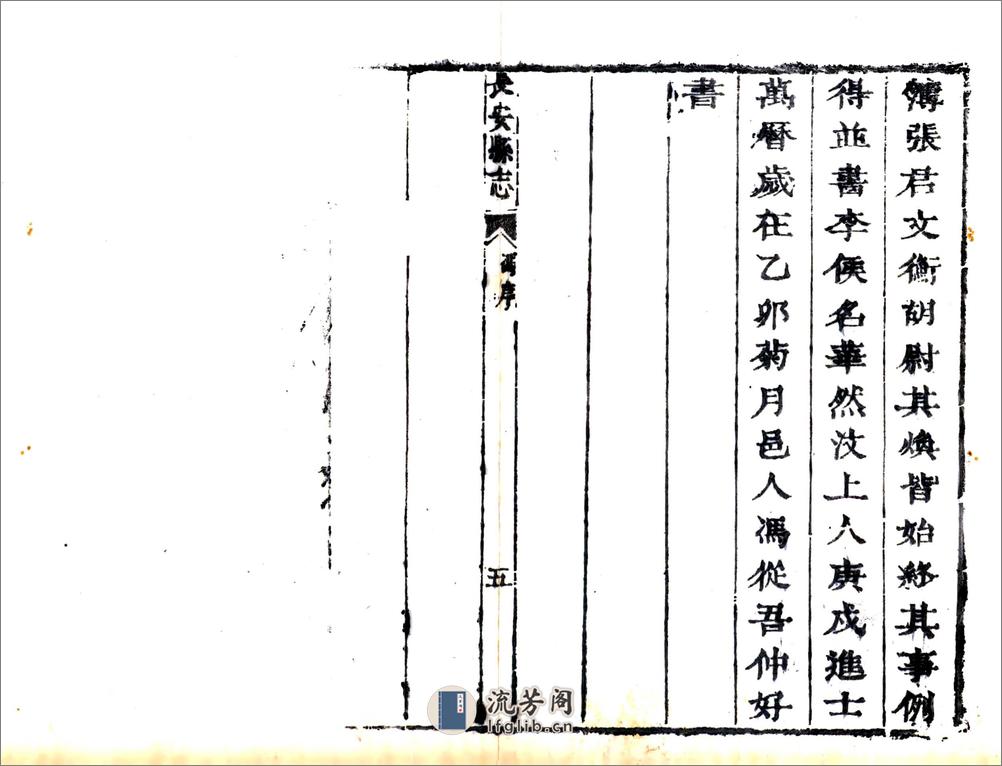 簿張君文衡胡尉其煥皆始終其事例
得並書李侯名華然汶上人庚戌進士
萬曆歲在乙卯菊月邑人馮從吾仲好
書
長安縣志
馮序
五
流芳阁
lfglib.cn